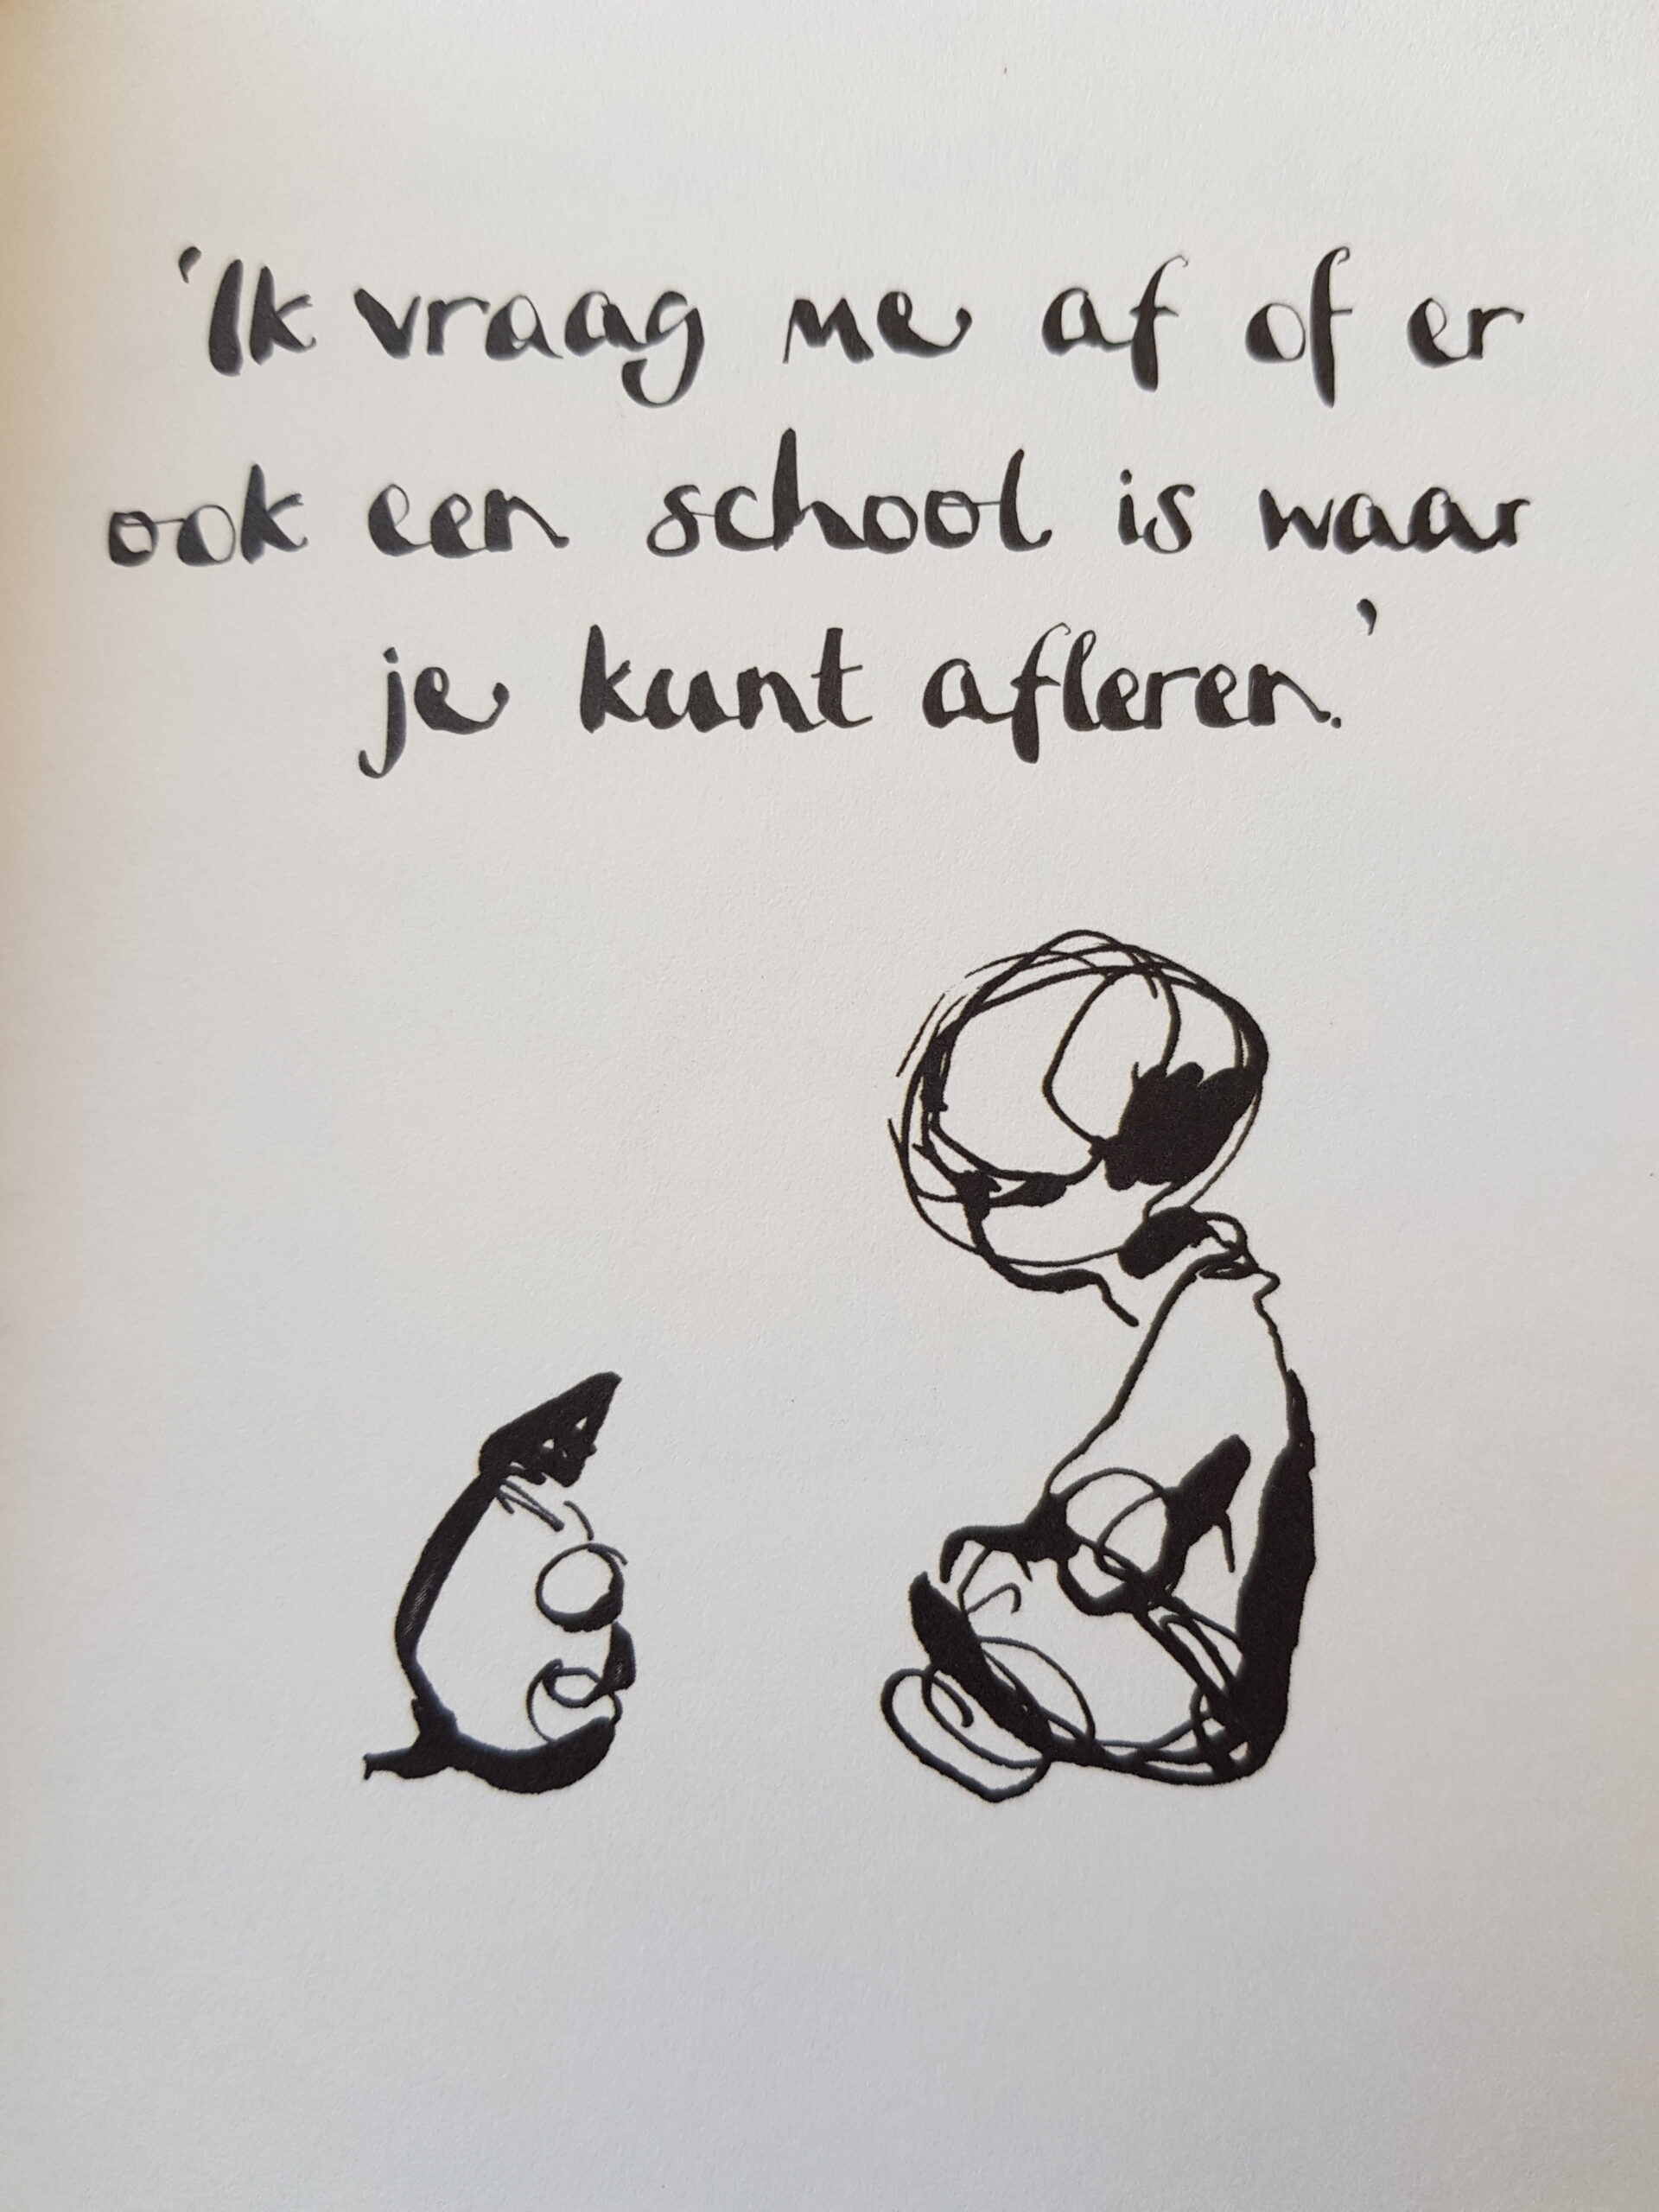 'Ik vraag me af of er
ook een school is waar
je kunt afleren.'